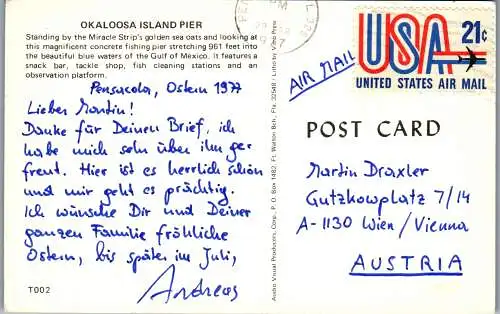 OKALOOSA ISLAND PIER
Standing by the Miracle Strip's golden sea oats and looking at
this magnificent concrete fishing pier stretching 961 feet into
the beautiful blue waters of the Gulf of Mexico. It features a
snack bar, tackle shop, fish cleaning stations and an
observation platform.
Pensacola, Ostern 1977
Lieber Martin!
Danke für Deinen Brief, ich
habe mich sehr über ihn ge-
freut. Hier ist es herrlich schön
und mir geht es prächtig.
Ich wünsche Dir und Deiner
ganzen Familie fröhliche
Ostern, bis später im Juli,
Andreas
T002
Audio Visual Producers, Corp. P.O. Box 1482, Ft. Walton Bch., Fla. 32548
PM
USA 21¢
UNITED STATES AIR MAIL
AIR MAIL
POST CARD
Martin Draxler
Gutzkowplatz 7/14
A-1130 Wien/Vienna
AUSTRIA